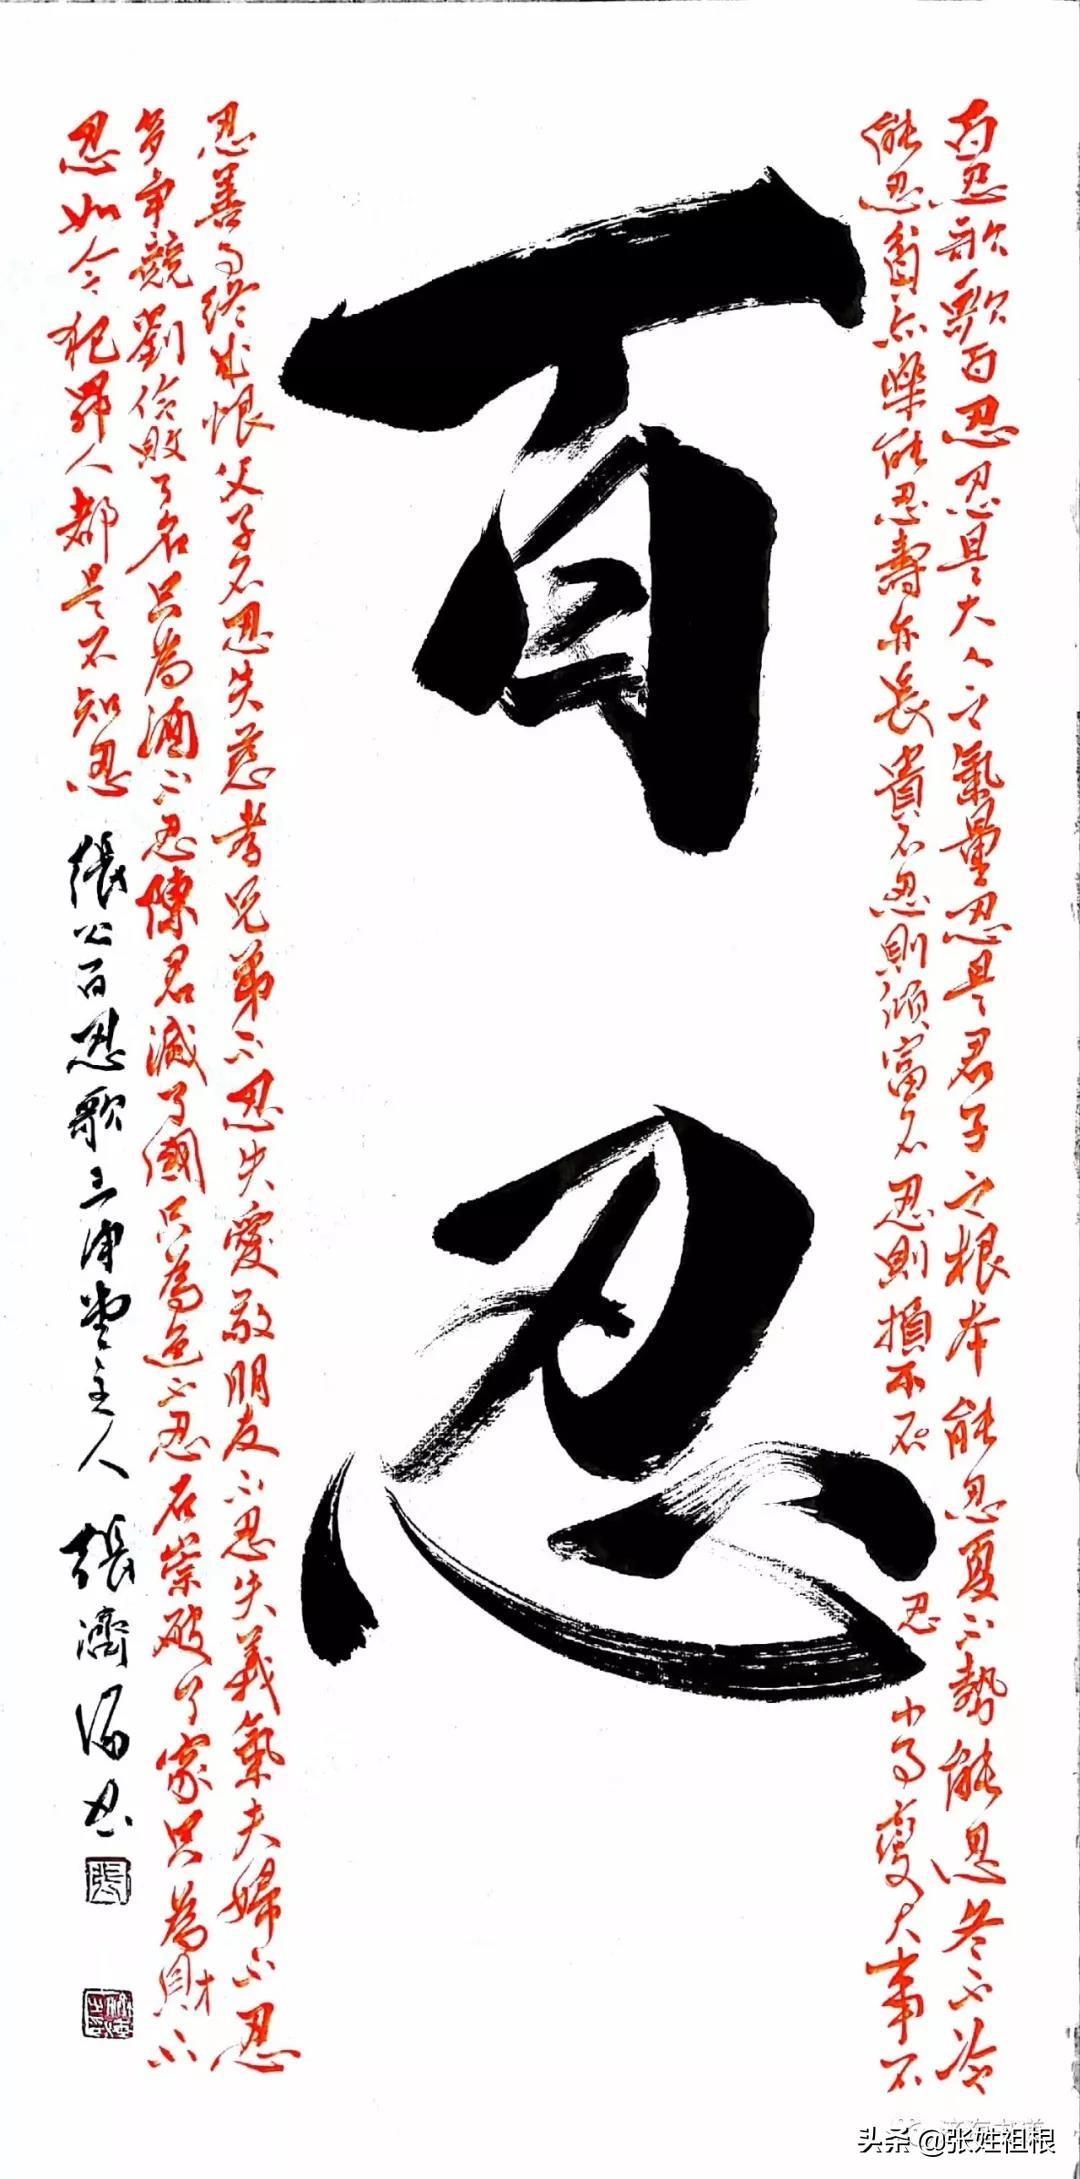 百忍歌歌百忍忍是大人之氣量忍是君子之根本能忍夏不熱能忍冬不冷
能忍貧亦樂能忍壽亦長貴不忍則傾富不忍則損不不忍小事變大事不
百忍
忍善事終成恨父子不忍失慈孝兄弟不忍失愛敬朋友不忍失義氣夫婦不忍
多爭競劉伶敗了名只為酒不忍陳君滅了國只為色不忍石崇破了家只為財不
忍如今犯罪人都是不知忍 張公百忍歌三浦堂主人 張濟海書
張
头条 @张姓祖根